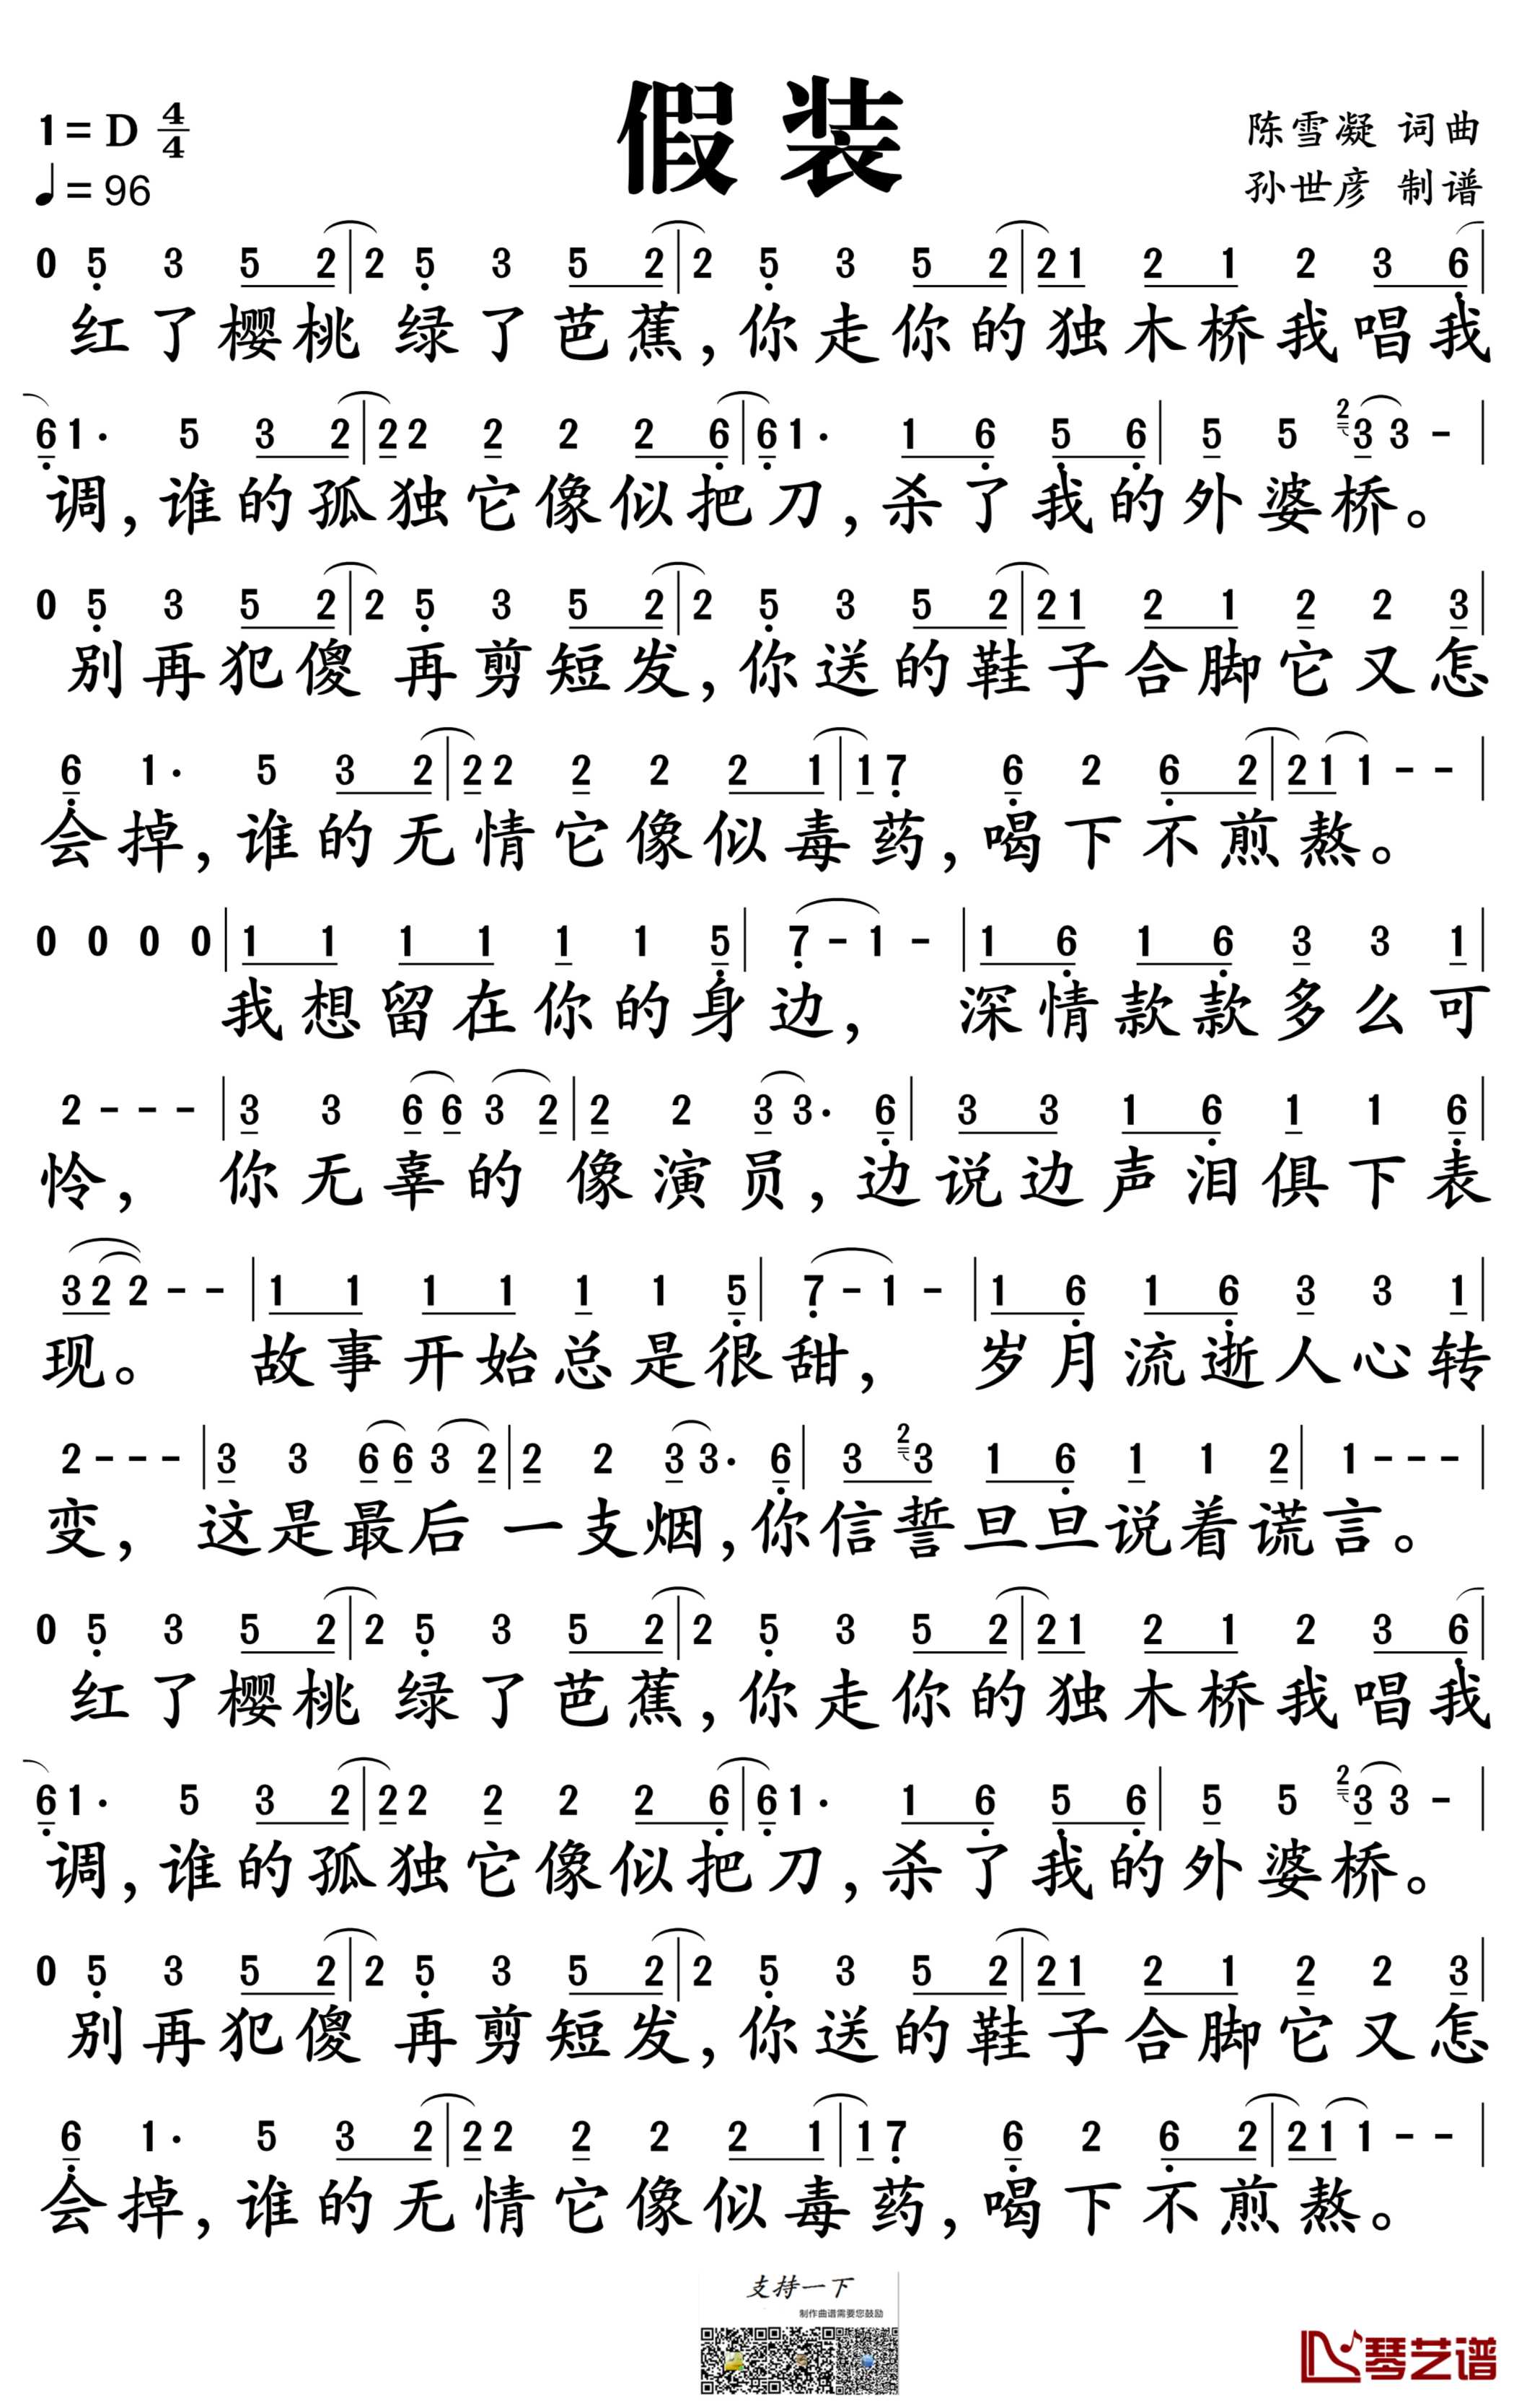 假装
1=D 4/4
♩=96
陈雪凝 词曲
孙世彦 制谱
0 5̣ 3 5 2|2 5̣ 3 5 2|2 5̣ 3 5 2|21 2 1 2 3 6̣|
红了樱桃 绿了芭蕉,你走你的独木桥我唱我
6̣1· 5 3 2|22 2 2 2 6̣|6̣1· 1 6̣ 5̣ 6̣|5 5 2 3 3 -|
调,谁的孤独它像似把刀,杀了我的外婆桥。
0 5̣ 3 5 2|2 5̣ 3 5 2|2 5̣ 3 5 2|21 2 1 2 2 3|
别再犯傻 再剪短发,你送的鞋子合脚它又怎
6̣ 1· 5 3 2|22 2 2 2 1|1 7̣ 6̣ 2 6̣ 2|21 1 - -|
会掉,谁的无情它像似毒药,喝下不煎熬。
0 0 0 0|1 1 1 1 1 1 5̣|7̣ - 1 -|1 6̣ 1 6̣ 3 3 1|
我想留在你的身边, 深情款款多么可
2 - - -|3 3 6 6 3 2|2 2 3 3· 6̣|3 3 1 6̣ 1 1 6̣|
怜, 你无辜的 像演员,边说边声泪俱下表
3 2 2 - -|1 1 1 1 1 1 5̣|7̣ - 1 -|1 6̣ 1 6̣ 3 3 1|
现。 故事开始总是很甜, 岁月流逝人心转
2 - - -|3 3 6 6 3 2|2 2 3 3· 6̣|3 2 3 1 6̣ 1 1 2|1 - - -|
变, 这是最后 一支烟,你信誓旦旦说着谎言。
0 5̣ 3 5 2|2 5̣ 3 5 2|2 5̣ 3 5 2|21 2 1 2 3 6̣|
红了樱桃 绿了芭蕉,你走你的独木桥我唱我
6̣1· 5 3 2|22 2 2 2 6̣|6̣1· 1 6̣ 5̣ 6̣|5 5 2 3 3 -|
调,谁的孤独它像似把刀,杀了我的外婆桥。
0 5̣ 3 5 2|2 5̣ 3 5 2|2 5̣ 3 5 2|21 2 1 2 2 3|
别再犯傻 再剪短发,你送的鞋子合脚它又怎
6̣ 1· 5 3 2|22 2 2 2 1|1 7̣ 6̣ 2 6̣ 2|21 1 - -|
会掉,谁的无情它像似毒药,喝下不煎熬。
支持一下
制作曲谱需要您鼓励
琴艺谱